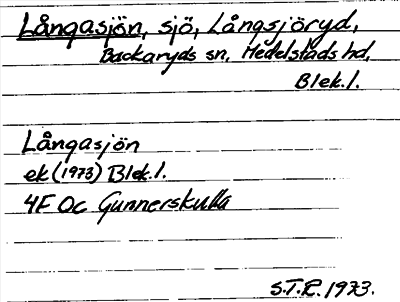 Långasjön, sjö, Långsjöryd,
Backaryds sn, Medelstads hd,
Blek.l.
Långasjön
ek (1973) Blek.l.
4F 0c Gunnerskulla
S.T.R. 1973.